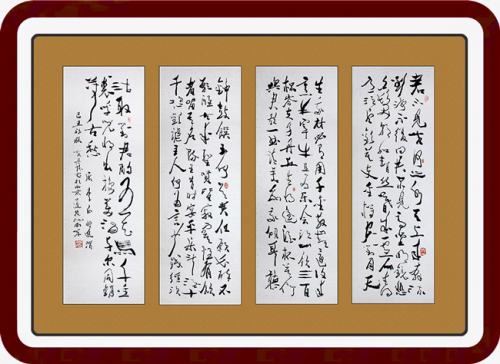 君不見黃河之水天上來奔流
到海不復回君不見高堂明鏡悲
白髮朝如青絲暮成雪人生得意
須盡歡莫使金樽空對月天
生我材必有用千金散盡還復來
烹羊宰牛且為樂會須一飲三百
杯岑夫子丹丘生將進酒杯莫停
與君歌一曲請君為我傾耳聽
鐘鼓饌玉何足貴但願長醉不
願醒古來聖賢皆寂寞惟有飲
者留其名陳王昔時宴平樂斗酒十
千恣歡謔主人何為言少錢徑須
沽取對君酌五花馬千金
裘呼兒將出換美酒與爾同銷
萬古愁 唐李白
己丑